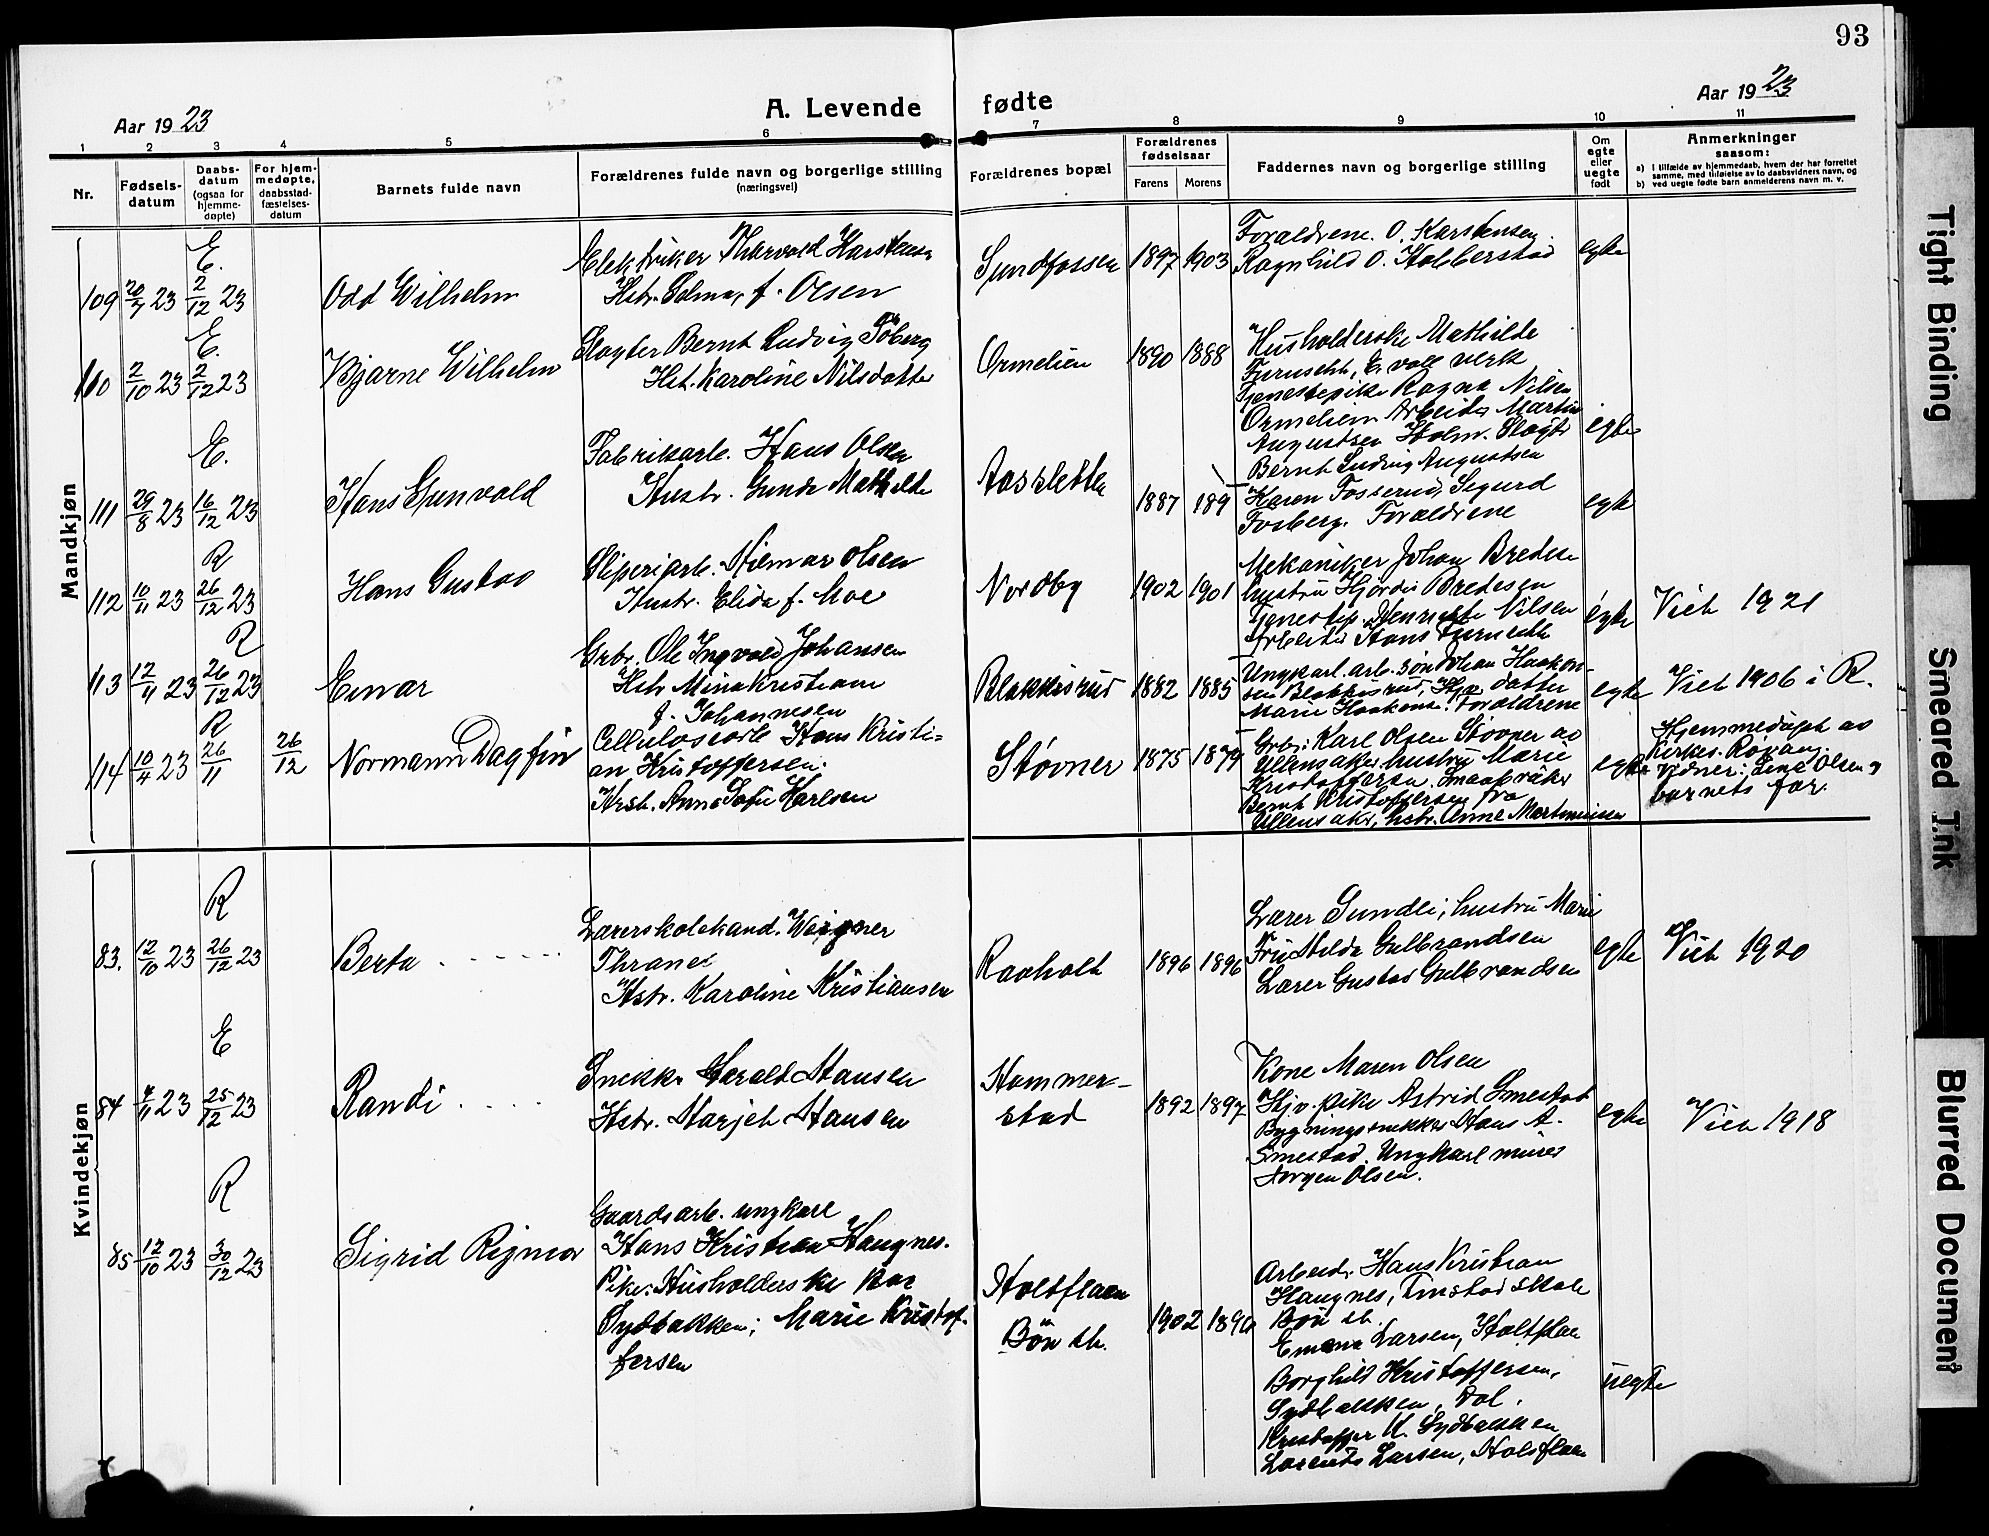 93
Aar 1923
A. Levende fødte
Aar 1923
1 2 3 4 5 6 7 8 9 10 11
Nr.
Fødsels-
datum
Daabs-
datum
(ogsaa for
hjemme-
døpte)
For hjem-
medøpte,
daabsstad-
fæstelses-
datum
Barnets fulde navn
Forældrenes fulde navn og borgerlige stilling
(næringsvei)
Forældrenes bopæl
Forældrenes
fødselsaar
Farens Morens
Faddernes navn og borgerlige stilling
Om
egte
eller
uegte
født
Anmerkninger
saasom:
a) i tilfælde av hjemmedaab, hvem der har forrettet
samme, med tilføielse av to daabsvidners navn, og
b) ved uegte fødte barn anmelderens navn m. v.
Mandkjøn
E.
109 20/7 23 2/12 23
Odd Wilhelm
Elektriker Thorvald Karstensen
Hstr. Selma, f. Olsen
Sundfossen
1897 1903
Forældrene. O. Karstensen.
Ragnhild O. Habberstad
egte
E.
110 2/10 23 2/12 23
Bjarne Wilhelm
Slagter Bernt Ludvig
Hst. Karoline Nilsdatter
Ormelien
1890 1888
Husholderske Mathilde
Furuseth, Eidsvoll verk
Tjenestepike Ragna Nilsen
Ormelien Arbeider Martin
Augustsen Holm. Slagter
Bernt Ludvig Augustsen
egte
E.
111 29/8 23 16/12 23
Hans Gunvald
Fabrikarb. Hans Olsen
Hustr. Gunda Mathilde
Aassletta
1887 189
Karen Fosserud, Sigurd
Fosberg. Forældrene
egte
R
112 10/11 23 26/12 23
Hans Gustav
Sliperiarb. Hilmar Olsen
Hustr. Elida f. Moe
Nordby
1902 1901
Mekaniker Johan Bredesen
hustru Hjørdis Bredesen
Tjenestep. Henriette Nilsen
Arbeider Hans Furuseth
egte
Viet 1921
R
113 12/11 23 26/12 23
Einar
Grbr. Ole Ingvald Johansen
Hstr Mina Kristiane
f. Johannesen
Blakkisrud
1882 1885
Ungkarl. arb. søn Johan Haakon-
sen Blakkisrud, Hj. datter
Marie Haakons. Forældrene
egte
Viet 1906 i R.
R
114 10/4 23 26/11 26/12
Normann Dagfin
Cellulosearb Hans Kristi-
an Kristoffersen.
Hrst. Anna Sofie Karlsen
Støvner
1875 1879
Grbr. Karl Olsen Støvner av
Ullensaker hustru Marie
Kristoffersen. Smaabruker
Bernt Kristoffersen fra
Ullensaker, hstr. Anne Martiniusen
egte
Hjemmedøpt av
Kirkes. Rovang.
Vidner: Line Olsen og
barnets far.
Kvindekjøn
R
83. 12/10 23 26/12 23
Berta
Lærerskolekand. Wergner
Thranes
Hstr. Karoline Kristiansen
Raaholt
1896 1896
Lærer Sundli, hustru Marie
Fru Hilda Gulbrandsen
Lærer Gustav Gulbrandsen
egte
Viet 1920
E
84 4/11 23 25/12 23
Randi
Snekker Harald Hansen
Hstr. Marjet Hansen
Hammer-
stad
1892 1897
Kone Maren Olsen
Hjv. pike Astrid Smestad
Bygningssnekker Hans A.
Smestad. Ungkarl murer
Jørgen Olsen.
egte
Viet 1918
R
85 12/10 23 30/12 23
Sigrid Rigmor
Gaardsarb. ungkarl
Hans Kristian Haugnes.
Pike. Husholderske
Sydbakken; Marie Kristof-
fersen
Holtflaen
Bøn st.
1902 1896
Arbeider Hans Kristian
Haugnes, Finstad skole
Bøn st.
Emma Larsen, Holtflaen
Borghild Kristoffersen,
Sydbakken, Dal.
Kristoffer K. Sydbakken
Laurits Larsen, Holtflaen
uegte
Tight Binding
Smeared Ink
Blurred Document